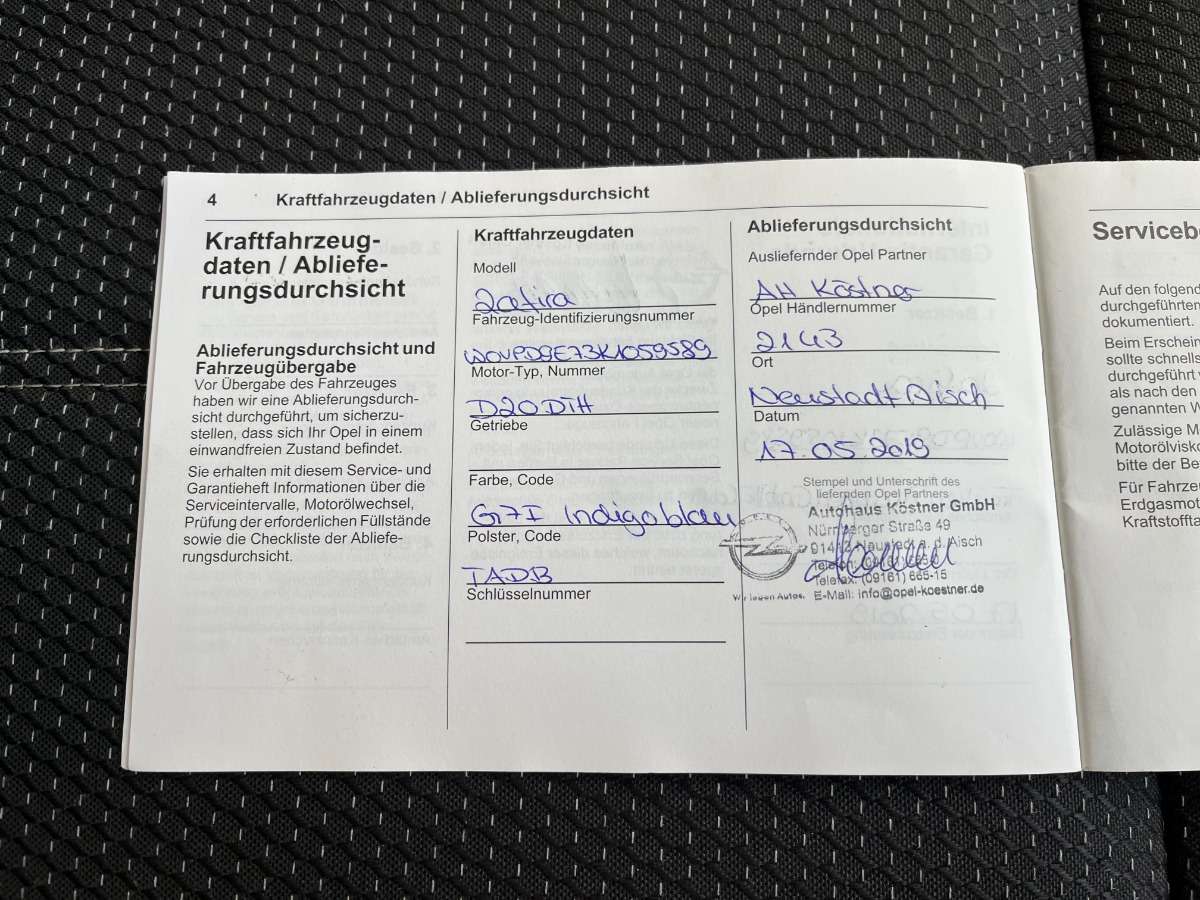 4 Kraftfahrzeugdaten / Ablieferungsdurchsicht
Kraftfahrzeug-
daten / Abliefe-
rungsdurchsicht
Ablieferungsdurchsicht und
Fahrzeugübergabe
Vor Übergabe des Fahrzeuges
haben wir eine Ablieferungsdurch-
sicht durchgeführt, um sicherzu-
stellen, dass sich Ihr Opel in einem
einwandfreien Zustand befindet.
Sie erhalten mit diesem Service- und
Garantieheft Informationen über die
Serviceintervalle, Motorölwechsel,
Prüfung der erforderlichen Füllstände
sowie die Checkliste der Abliefe-
rungsdurchsicht.
Kraftfahrzeugdaten
Modell
Zafira
Fahrzeug-Identifizierungsnummer
W0VPD9E73K1059589
Motor-Typ, Nummer
D20DTH
Getriebe
Farbe, Code
G7I Indigoblau
Polster, Code
TADB
Schlüsselnummer
Ablieferungsdurchsicht
Ausliefernder Opel Partner
AH Köstner
Opel Händlernummer
2143
Ort
Neustadt Aisch
Datum
17.05.2019
Stempel und Unterschrift des
liefernden Opel Partners
Autohaus Köstner GmbH
Nürnberger Straße 49
a. d. Aisch
Telefax: (09161) 665-15
Wir leben Autos. E-Mail: info@opel-koestner.de
Serviceb
Auf den folgend
durchgeführten
dokumentiert.
Beim Erschein
sollte schnells
durchgeführt
als nach den
genannten W
Zulässige M
Motorölvisk
bitte der Be
Für Fahrze
Erdgasmot
Kraftstofft